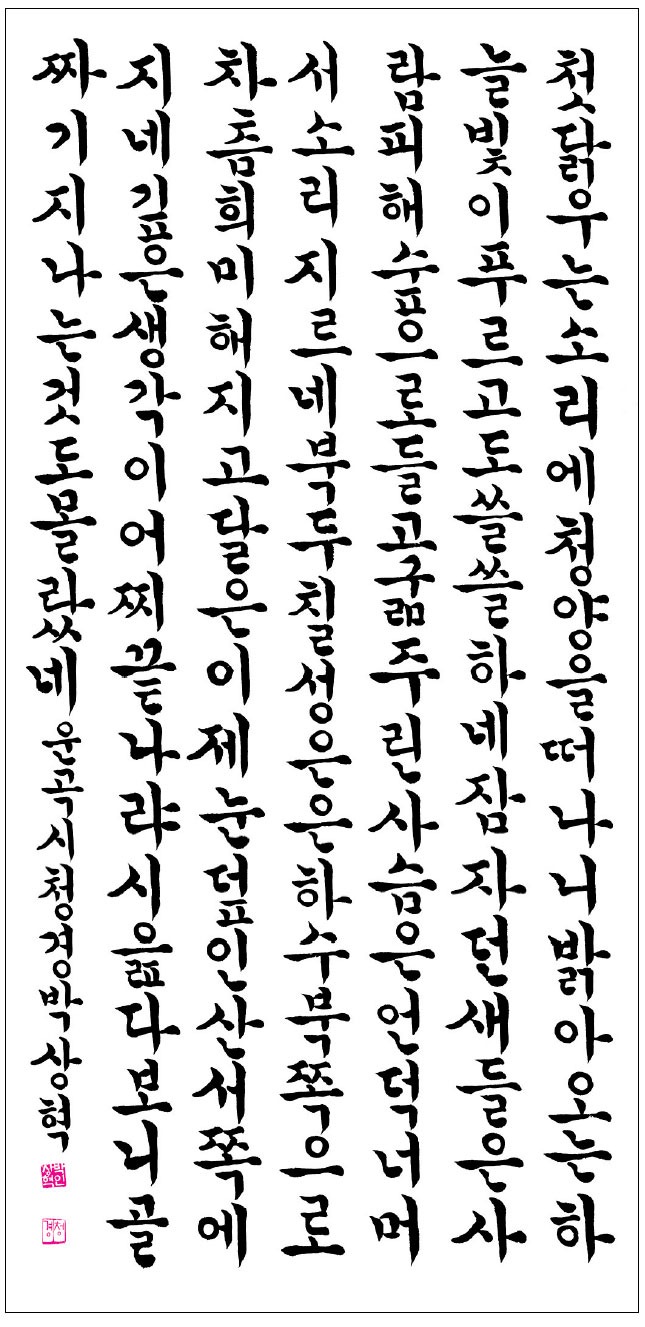 첫닭우는소리에청양을떠나니밝아오는하
늘빛이푸르고도쓸쓸하네잠자던새들은사
람피해숲으로들고굶주린사슴은언덕너머
서소리지르네북두칠성은은하수북쪽으로
차츰희미해지고달은이제눈덮인산서쪽에
지네깊은생각이어찌끝나랴시읊다보니골
짜기지나는것도몰랐네운곡시청경박상혁
박인상혁
청경